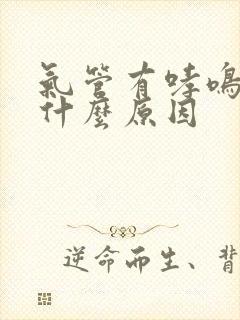 氣管有哮鳴
什麼原因
逆命而生、背